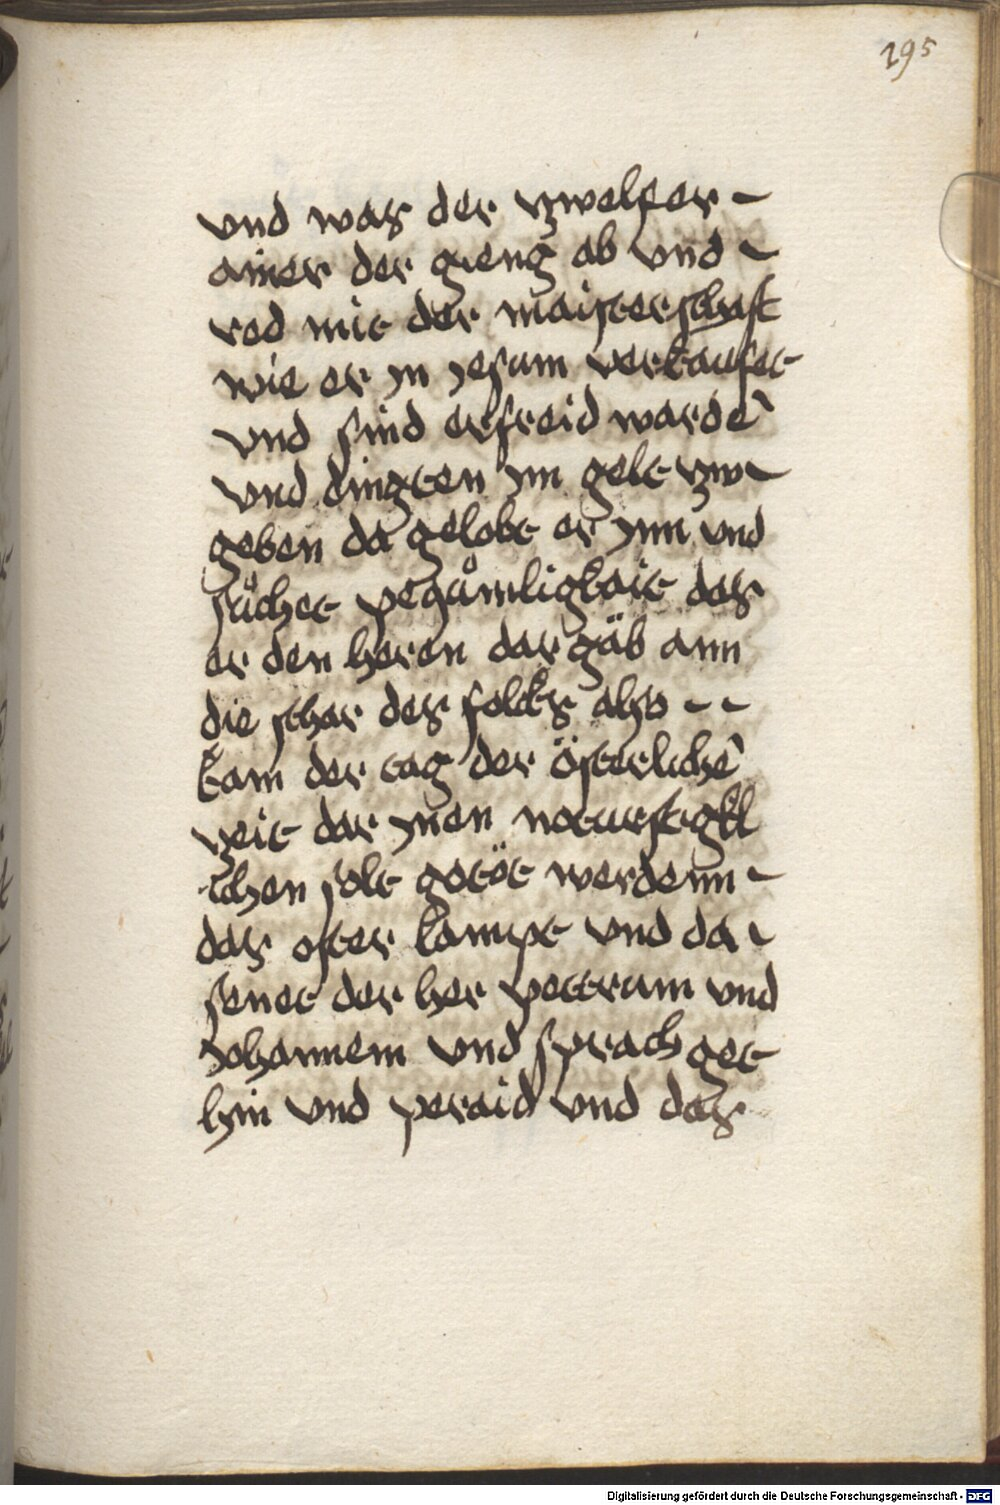 195
vnd was der zwelfer -
ainer der gieng ab vnd -
red mit der maisterschaft
wie er in Jesum verkaufet
vnd sind erfreid wardē
vnd dingten im gelt zw -
geben da gelobt er ynn vnd
sůchet peqůmligkait das
er den heren dar gäb ann
die schar des folcks also - -
kam der tag der österlichē
zeit dar ynen noturftigkl
ichen solt getöt werdenn -
das oster lampt vnd da -
senet der her pettram vnd
Johannem vnd sprach get
hin vnd peraid vnd das
Digitalisierung gefördert durch die Deutsche Forschungsgemeinschaft - DFG